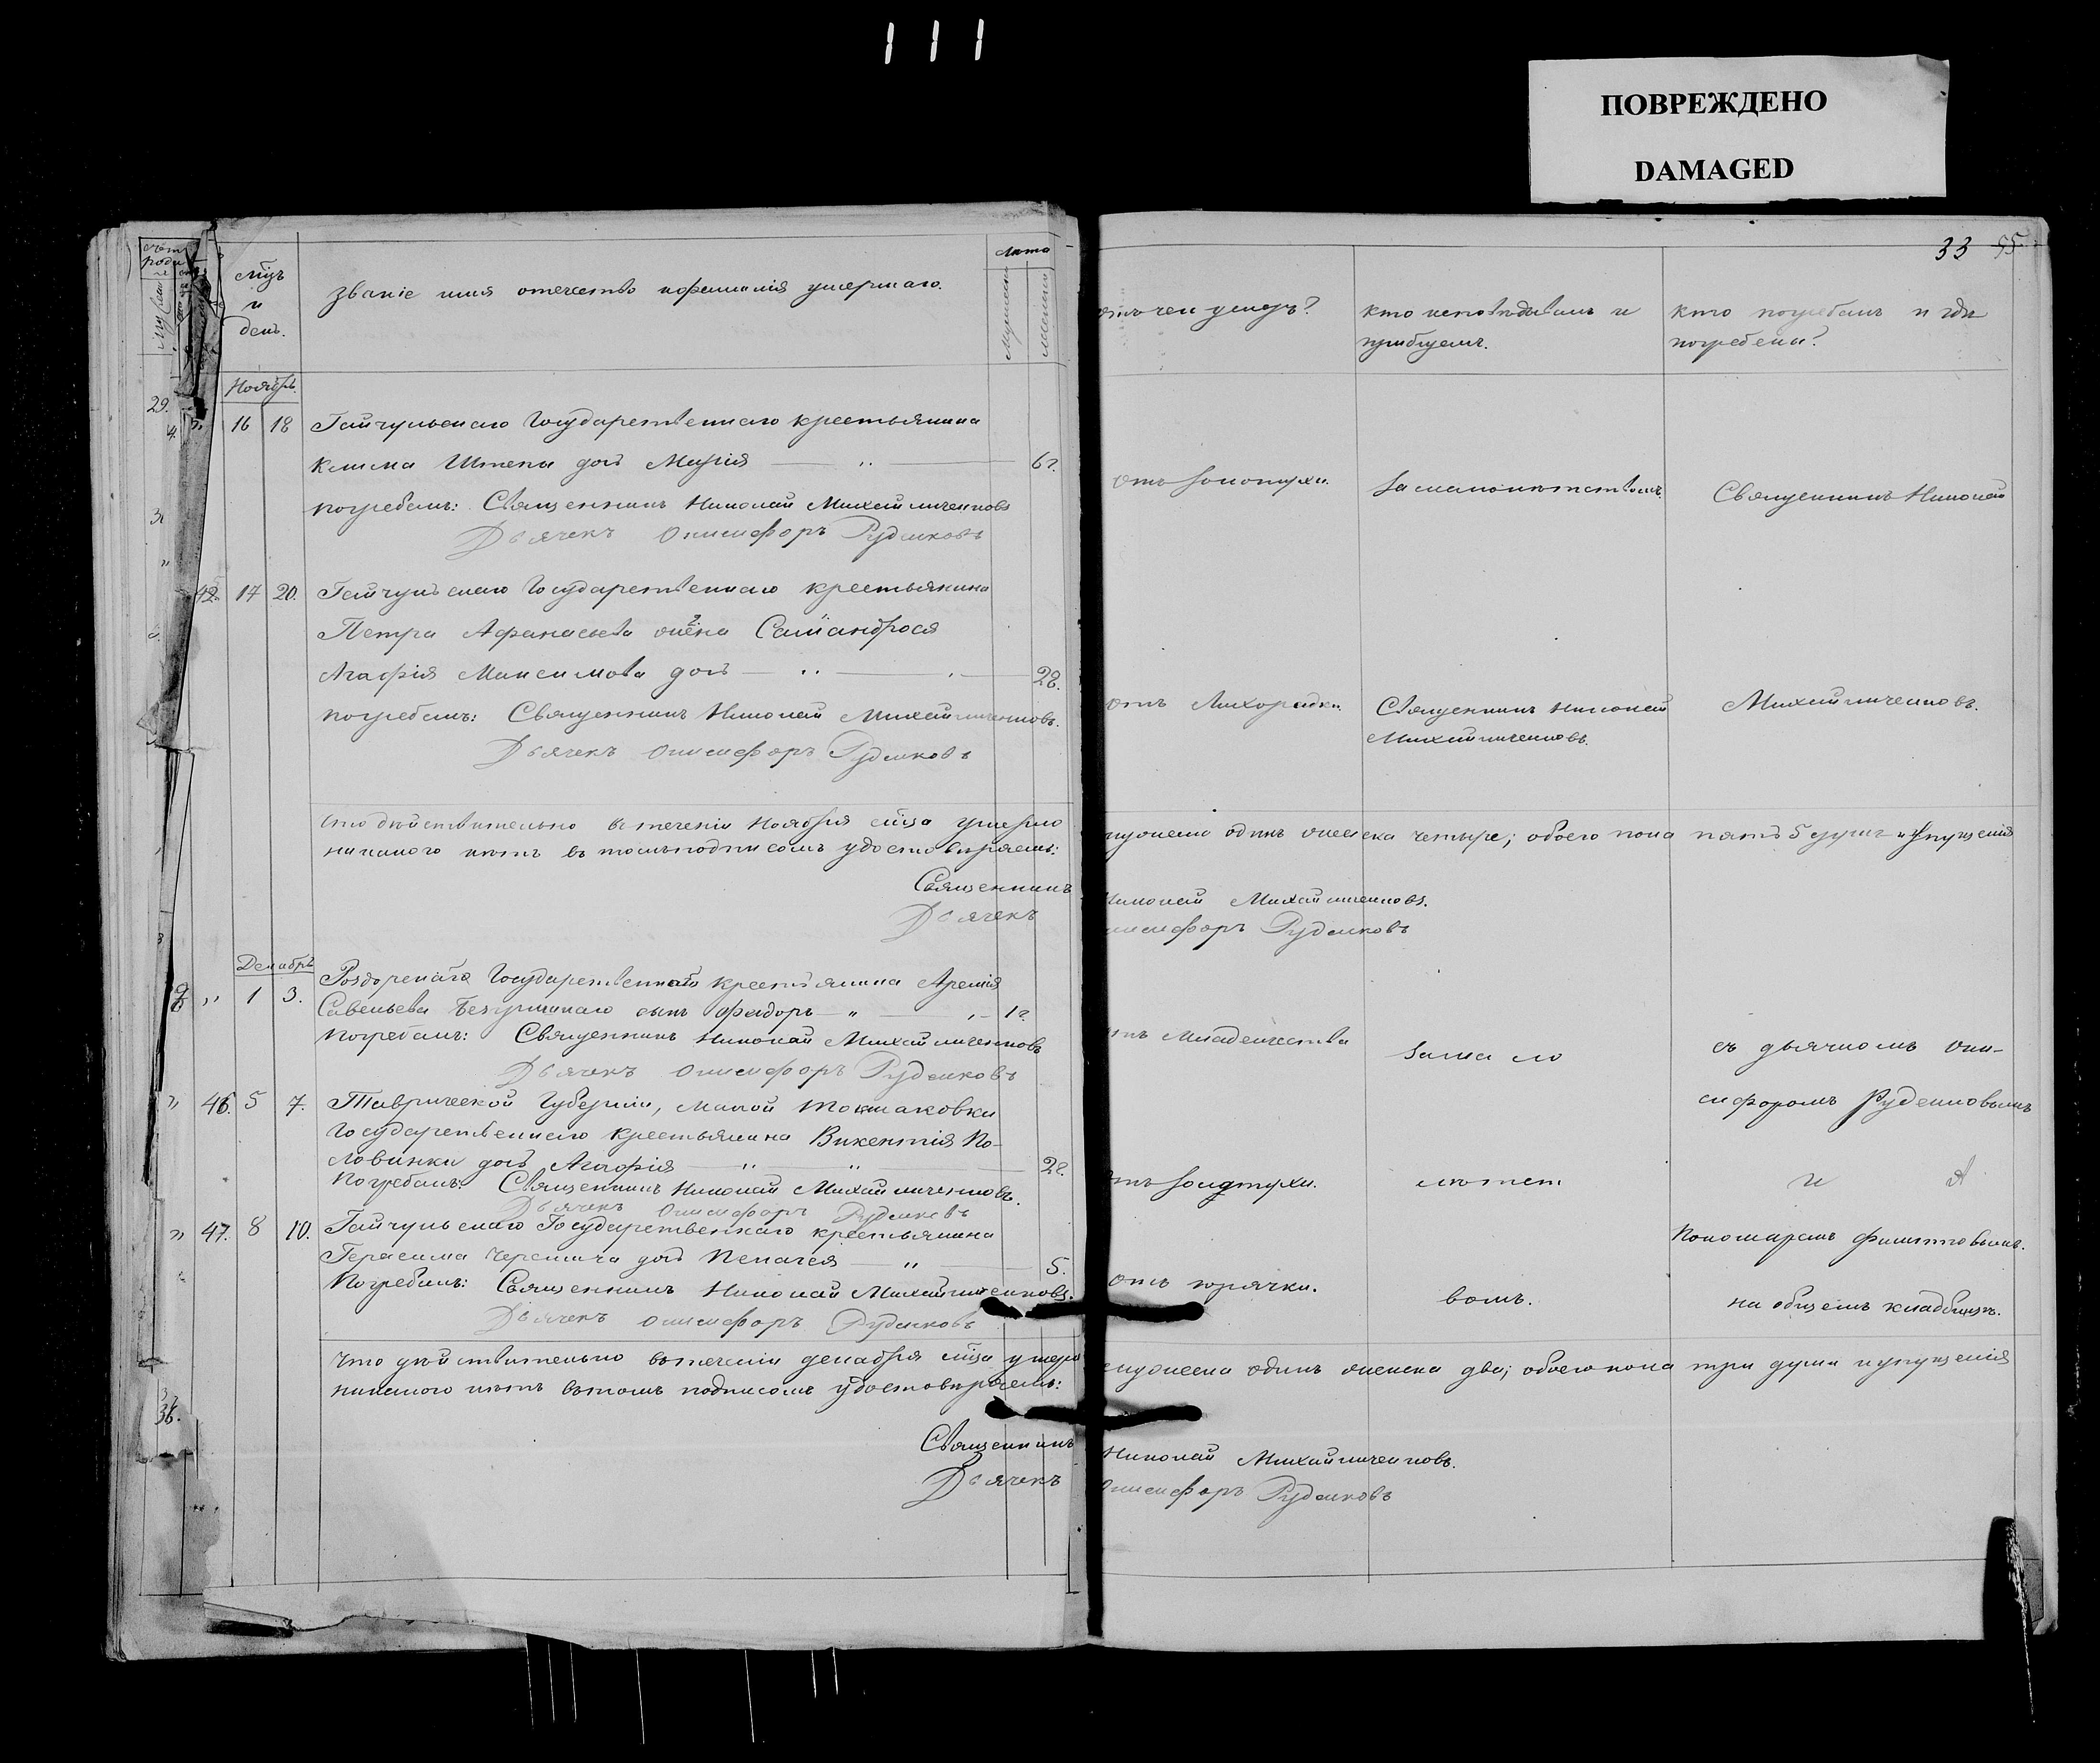 ПОВРЕЖДЕНО
DAMAGED
33 55
мѣцъ
и
день.
званіе имя отечество и фамилія умершаго.
Лета
отъ чего умеръ?
кто исповѣдывалъ и
пріобщалъ.
кто погребалъ и гдѣ
погребены?
Ноябрь
29.
16 18 Гайчульскаго Государственнаго крестьянина
Клима Штепы дочь Марія 6 г.
погребалъ: Священникъ Николай Михайличенковъ
Дьячекъ Онисифоръ Руденковъ
отъ золотухи.
за малолѣтствомъ.
Священникъ Николай
17 20. Гайчульскаго Государственнаго крестьянина
Петра Афанасьева
Агафія Максимова дочь 28.
погребалъ: Священникъ Николай Михайличенковъ.
Дьячекъ Онисифоръ Руденковъ
отъ Лихорадки.
Священникъ Николай
Михайличенковъ.
Михайличенковъ.
Что дѣйствительно въ теченіи Ноября мѣца умерло
мужеска одинъ женска четыре; обоего пола пять душъ и упущенія
никакого нѣтъ въ томъ подписомъ удостовѣряемъ:
Священникъ Николай Михайличенковъ.
Дьячекъ Онисифоръ Руденковъ
Декабрь
1 3. Государственнаго крестьянина
Савельева сынъ Феодоръ 1 г.
Погребалъ: Священникъ Николай Михайличенковъ
Дьячекъ Онисифоръ Руденковъ
отъ Младенчества
за мало
съ дьячкомъ Они-
сифоромъ Руденковымъ
46. 5 7. Таврической Губерніи, Малой Токмаковки
Государственнаго крестьянина Викентія По-
ловинки дочь Агафія 2 г.
Погребалъ: Священникъ Николай Михайличенковъ.
Дьячекъ Онисифоръ Руденковъ
отъ золотухи.
лѣтст
и
47. 8 10. Гайчульскаго Государственнаго крестьянина
Герасима дочь Пелагея 5.
Погребалъ: Священникъ Николай Михайличенковъ.
Дьячекъ Онисифоръ Руденковъ
отъ горячки.
вомъ.
Пономаремъ Филипповымъ.
на общемъ кладбищѣ.
Что дѣйствительно въ теченіи декабря мѣца умерло
мужеска одинъ женска два; обоего пола три души и упущенія
никакого нѣтъ въ томъ подписомъ удостовѣряемъ:
Священникъ Николай Михайличенковъ.
Дьячекъ Онисифоръ Руденковъ